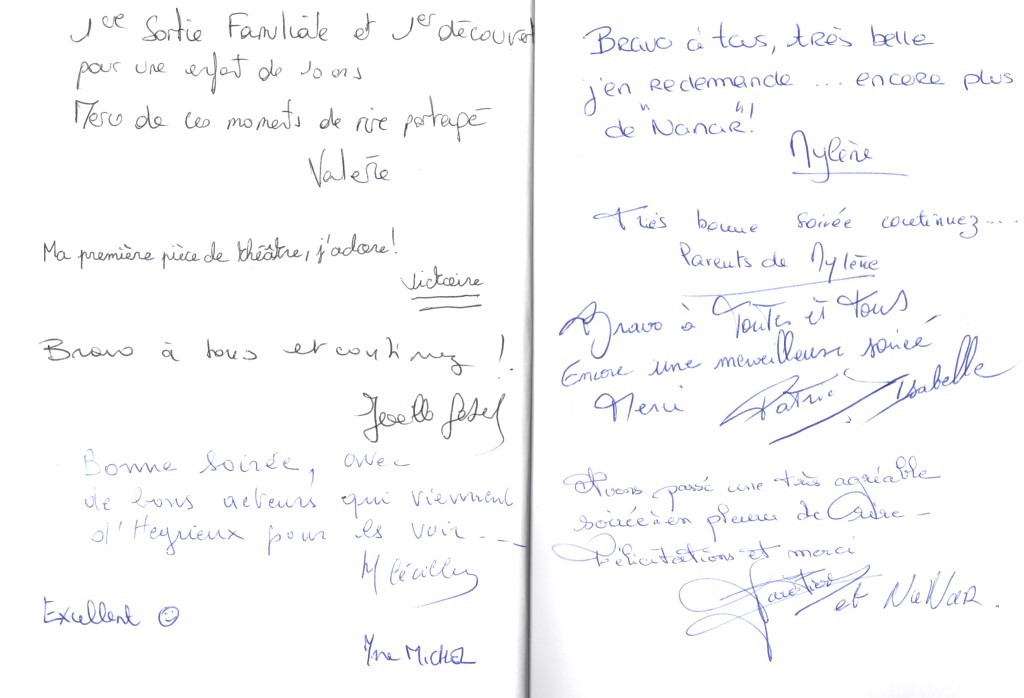 1ère Sortie Familiale et 1er découvert
pour une enfant de 10 ans
Merci de ces moments de rire partagé
Valerie
Ma première pièce de théâtre, j'adore!
Victoire
Bravo à tous et continuez !
Bonne soirée, avec
de bons acteurs qui viennent
d'Heyrieux pour les voir ...
Excellent ☺
MICHEL
Bravo à tous, très belle
j'en redemande ... encore plus
de "Nanar"!
Mylène
Très bonne soirée continuez....
Parents de Mylène
Bravo à Toutes et Tous
Encore une merveilleuse soirée
Merci Patric Isabelle
Avons passé une très agréable
soirée en pleurs de
Félicitations et merci
et NaNaR.